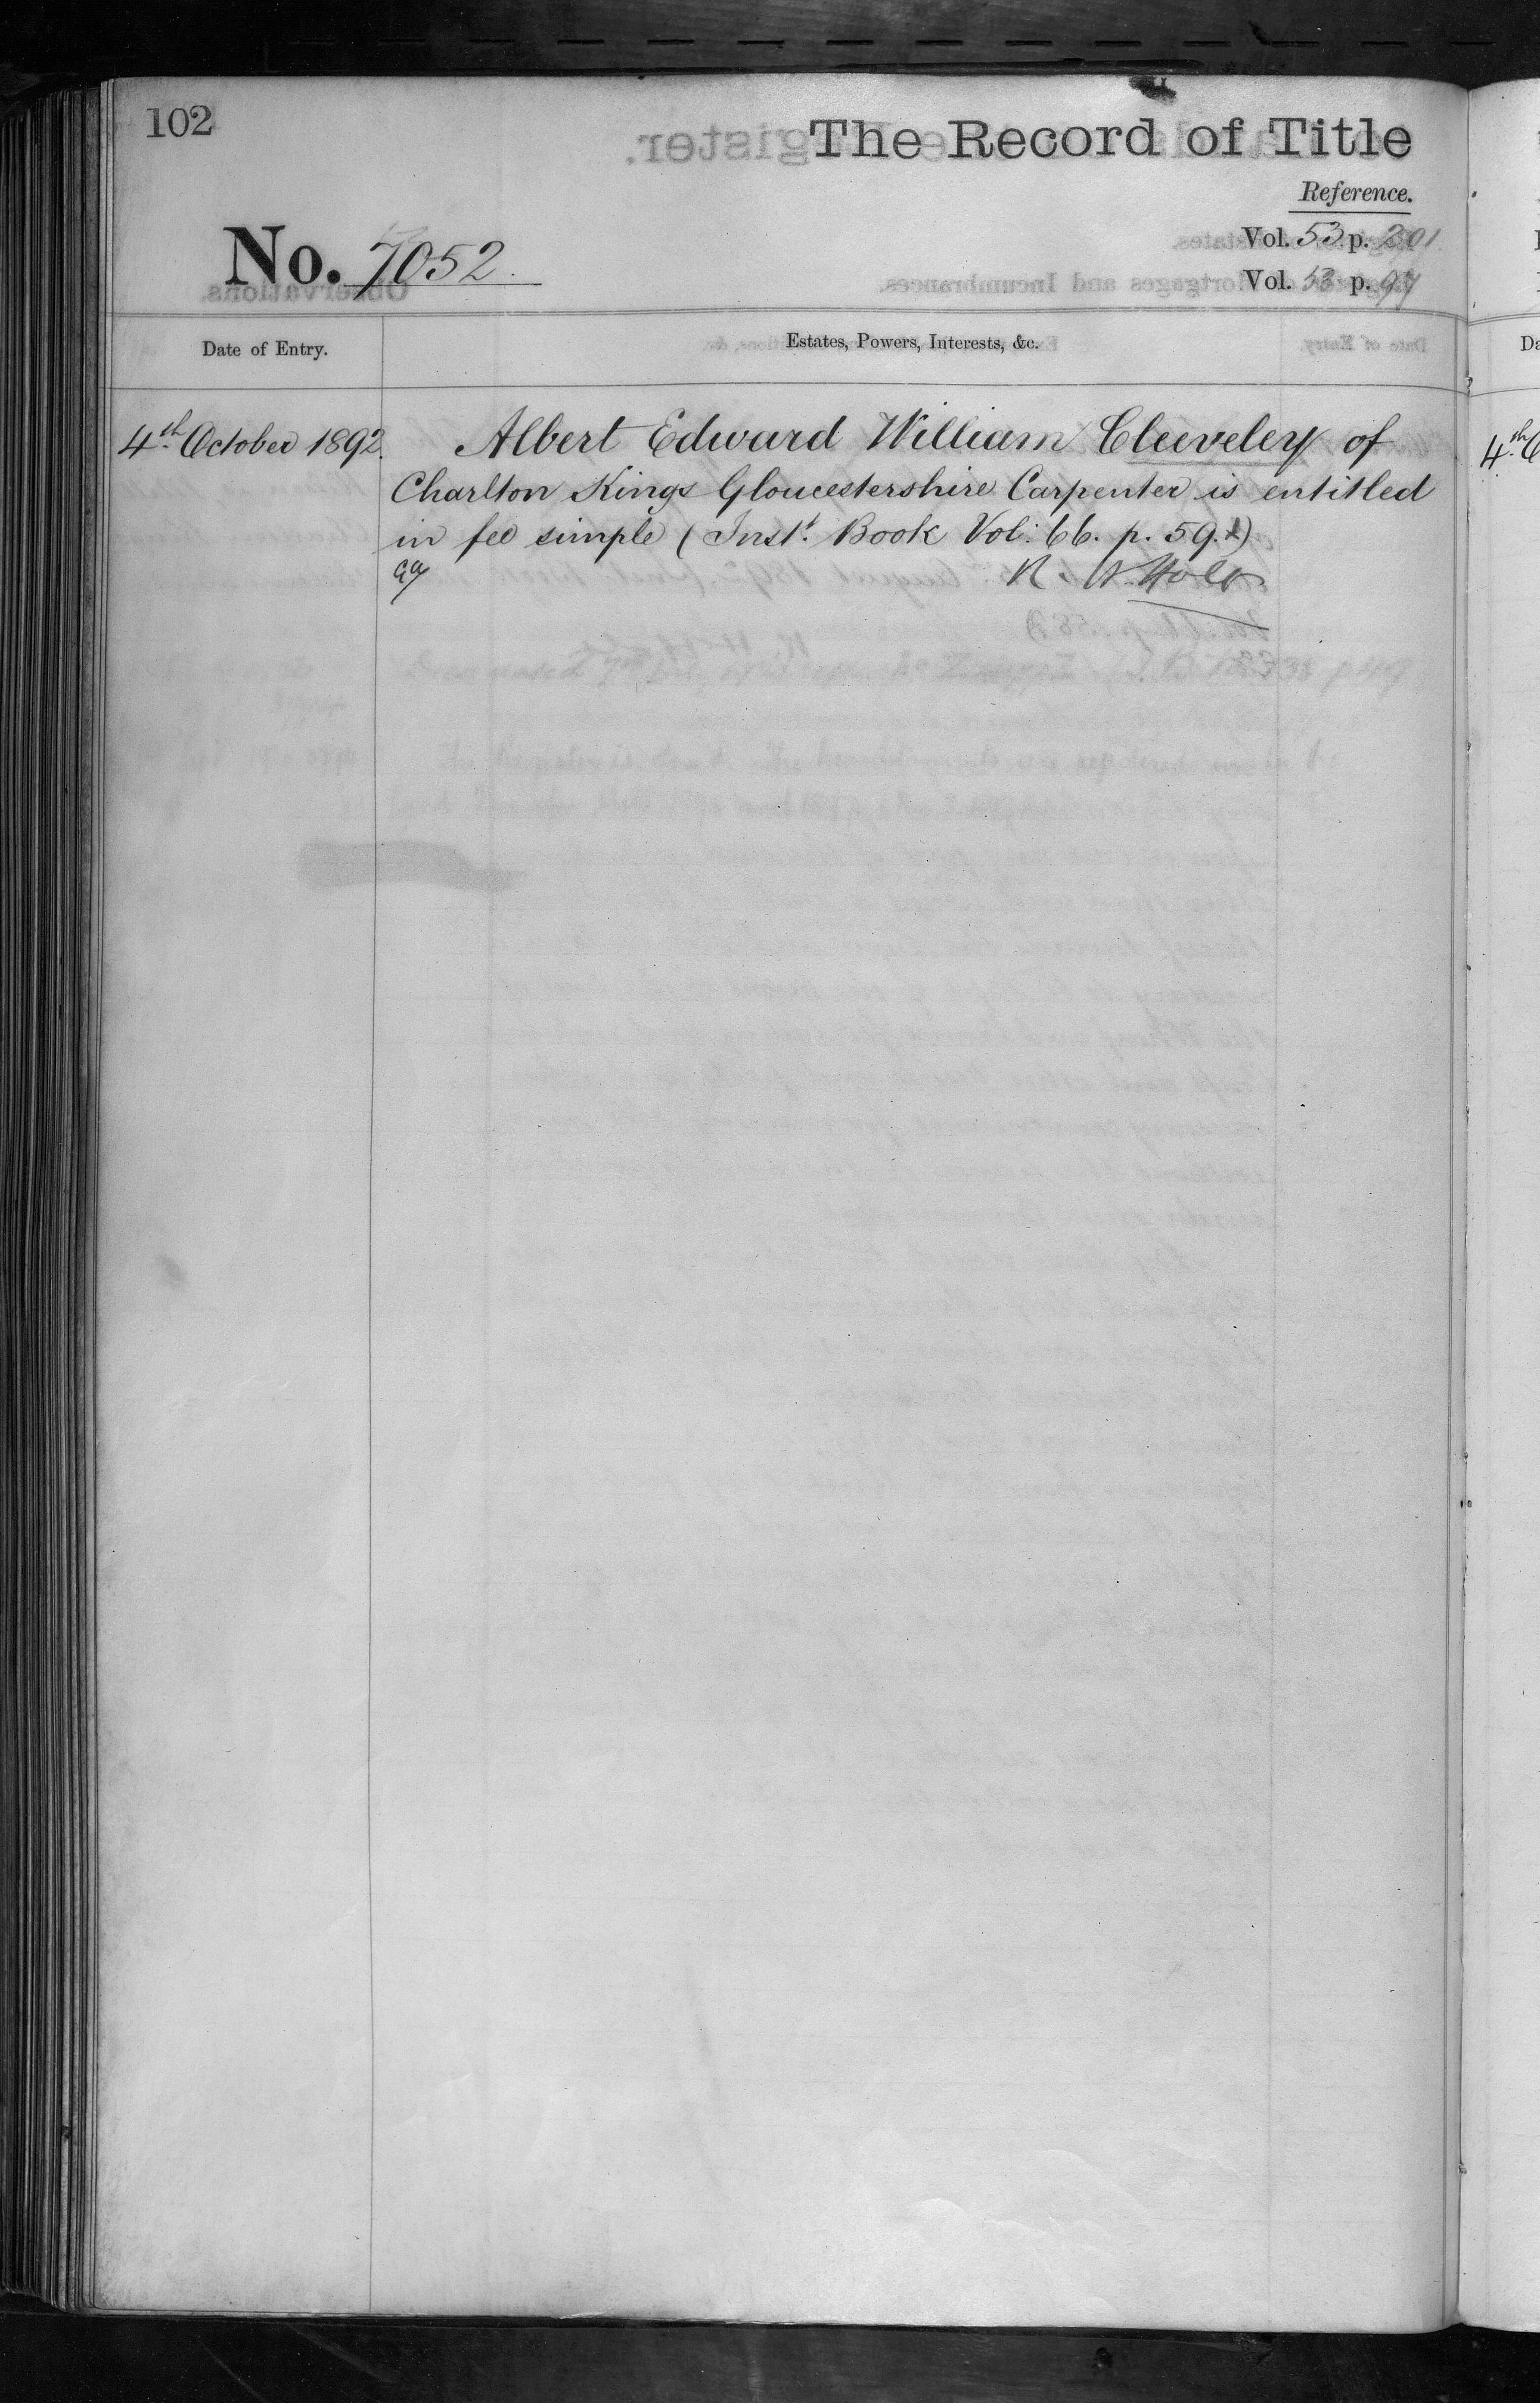 102
The Record of Title
Reference.
No. 7052.
Vol. 53 p. 201
Vol. 53 p. 97
Date of Entry.
Estates, Powers, Interests, &c.
4th October 1892.
Albert Edward William Cleeveley of
Charlton Kings Gloucestershire Carpenter is entitled
in fee simple (Inst. Book Vol: 66. p. 59.)
R. H. Holt